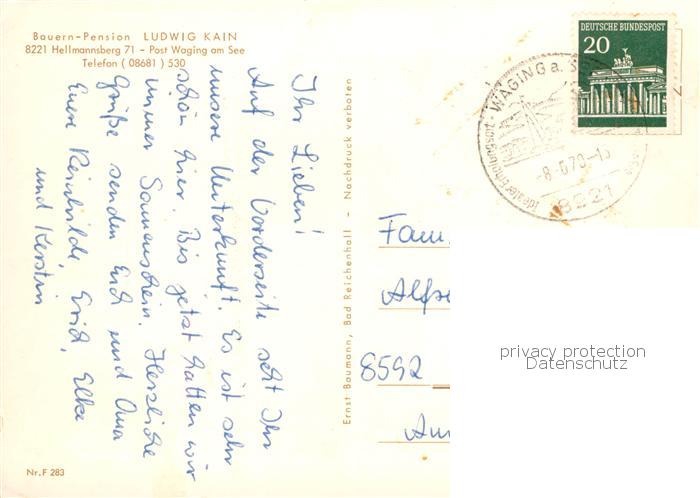 Bauern-Pension LUDWIG KAIN
8221 Hellmannsberg 71 - Post Waging am See
Telefon ( 08681 ) 530
Ihr Lieben!
Auf der Vorderseite seht Ihr
unsere Unterkunft. Es ist sehr
schön hier. Bis jetzt hatten wir
immer Sonnenschein. Herzliche
Grüße senden Euch und Oma
Eure Reinhilde, Erich, Elke
und Kerstin
Nr. F 283
Ernst Baumann, Bad Reichenhall - Nachdruck verboten
DEUTSCHE BUNDESPOST
20
WAGING a. S
Idealer Erholungsort
70-15
8221
Fam.
Alfre
8592
privacy protection
Datenschutz